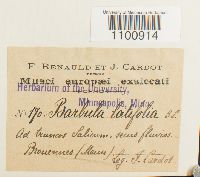 University of Minnesota Herbarium
1100914
F. RENAULD ET J. CARDOT
Musci europaei exsiccati
Herbarium of the University,
Minneapolis, Minn.
No 170. Barbula latifolia B.E.
Ad truncos Salicum, secus fluvios.
(Meuse) Leg. J. Cardot